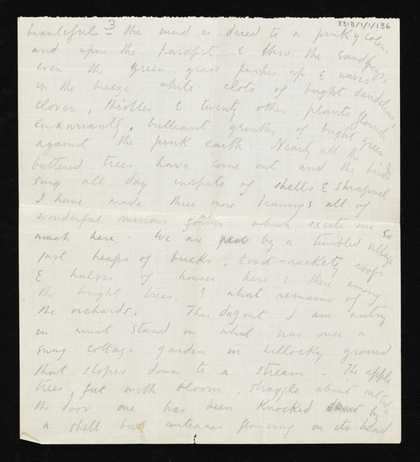 3
beautiful - the mud is dried to a pinky colour
and upon the parapet & thro the sandbags
even the green grass pushes up & waves
in the breeze while clots of bright dandelions
clover, thistles & twenty other plants flourish
luxuriantly, brilliant growths of bright green
against the pink earth. Nearly all the
battered trees have come out and the birds
sing all day in spite of shells & shrapnel
I have made three more drawings all of
wonderful ruinous which excite me so
much here. We are by a tumbled village
just heaps of bricks, toast-rackety roofs
& halves of houses here & there among
the bright trees & what remains of
the orchards. The dugout I am
in must stand in what was once a
snug cottage garden in hillocky ground
that slopes down to a stream. The apple
trees just with bloom, straggle about
the door one has been knocked down by
a shell but continues flowering on its head